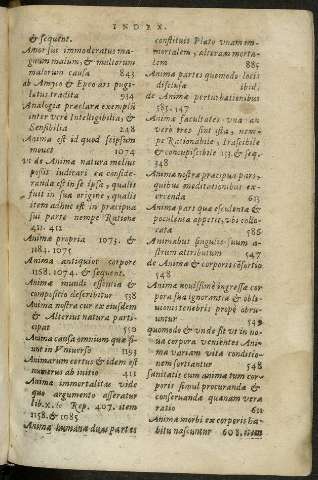 INDEX.
& sequent.
Amor sui immoderatus ma-
gnum malum, & multorum
malorum causa 843
ab Amyco & Epeo ars pugi-
latus tradita 934
Analogia præclaræ exempli
inter verè Intelligibilia, &
Sensibilia 248
Anima est id quod seipsum
mouet 1074
vt de Anima natura melius
possit iudicari ea conside-
randa est in se ipsa, qualis
fuit in sua origine, qualis
item adhuc est in præcipua
sui parte nempe Ratione
411. 412
Anima propria 1073. &
1084. 1075
Anima antiquior corpore
1168. 1074. & sequent.
Anima mundi essentia &
compositio describitur 538
Anima nostra cur ex eiusdem
& Alterius natura parti-
cipat 550
Anima causa omnium quæ fi-
unt in Vniuerso 1193
Animarum certus & idem est
numerus ab initio 411
Anima immortalitas vide
quo argumento asseratur
lib. X. to Rep. 407. item
1158. & 1085
Anima humana duas partes
constituit Plato vnam im-
mortalem, alteram morta-
lem 885
Anima partes quomodo locis
disclusa ibid.
de Anima perturbationibus
585. 147
Anima facultates vna an
verò tres sint ista, nem-
pe Rationabile, Irascibile
& concupiscibile 133. & seq.
348
Anima nostra præcipua pars,
quibus meditationibus ex-
ercenda 613
Anima pars qua esculenta &
poculenta appetit, vbi collo-
cata 586
Animabus singulis suum a-
strum attributum 547
de Anima & corporis consortio
548
Anima nouissimè ingressa cor
pora sua ignorantia & obli-
uionis tenebris propè obru-
untur 549
quomodo & vnde fit vt in no-
ua corpora venientes Ani-
ma variam vita conditio-
nem sortiantur 548
sanitatis cum anima tum cor-
poris simul procuranda &
conseruanda quanam vera
ratio 611
Anima morbi ex corporis ha-
bitu nascuntur 608. item